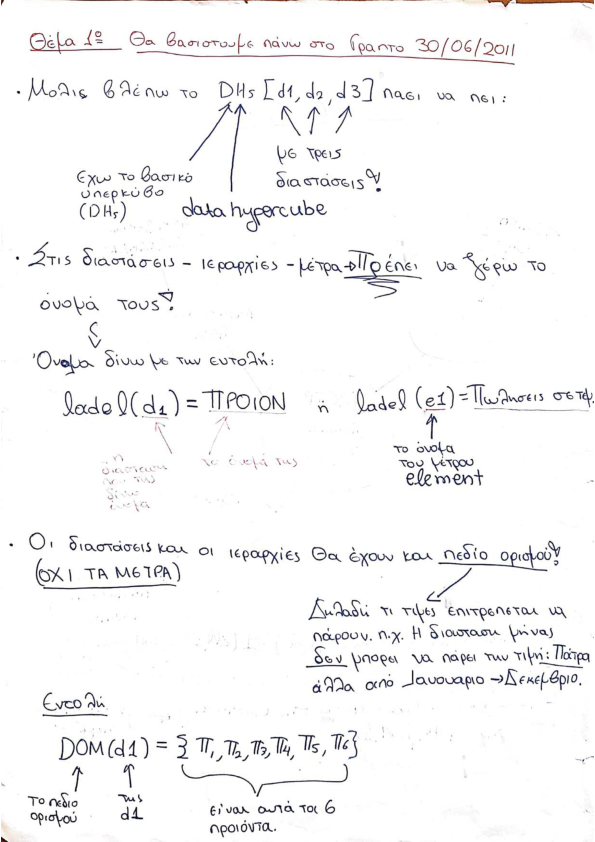 Θέμα 1º Θα βασιστουμε πάνω στο Γραπτο 30/06/2011
· Μολις βλέπω το DHs [d1, d2, d3] πασι να πει:
με τρεις
διαστάσεις!
εχω το βασικό
υπερκύβο
(DHs)
data hypercube
· Στις διαστάσεις - ιεραρχίες - μέτρα → Πρέπει να ξέρω το
όνομά τους!
Όνομα δίνω με την εντολή:
ladel(d1) = ΠΡΟΙΟΝ ή ladel (e1) = Πωλησεις σε τεμ.
το όνομα
του μέτρου
element
το όνομά της
δίνω
όνομα
· Οι διαστάσεις και οι ιεραρχίες θα έχουν και πεδίο ορισμού!
(ΟΧΙ ΤΑ ΜΕΤΡΑ)
Δηλαδή τι τιμές επιτρεπεται να
πάρουν. π.χ. Η διασταση μήνας
δεν μπορει να πάρει την τιμή: Πάτρα
άλλα από Ιανουαριο → Δεκεμβριο.
Εντολή
DOM(d1) = { Π1, Π2, Π3, Π4, Π5, Π6}
Το πεδιο
ορισμού
της
d1
είναι αυτά τα 6
προιόντα.